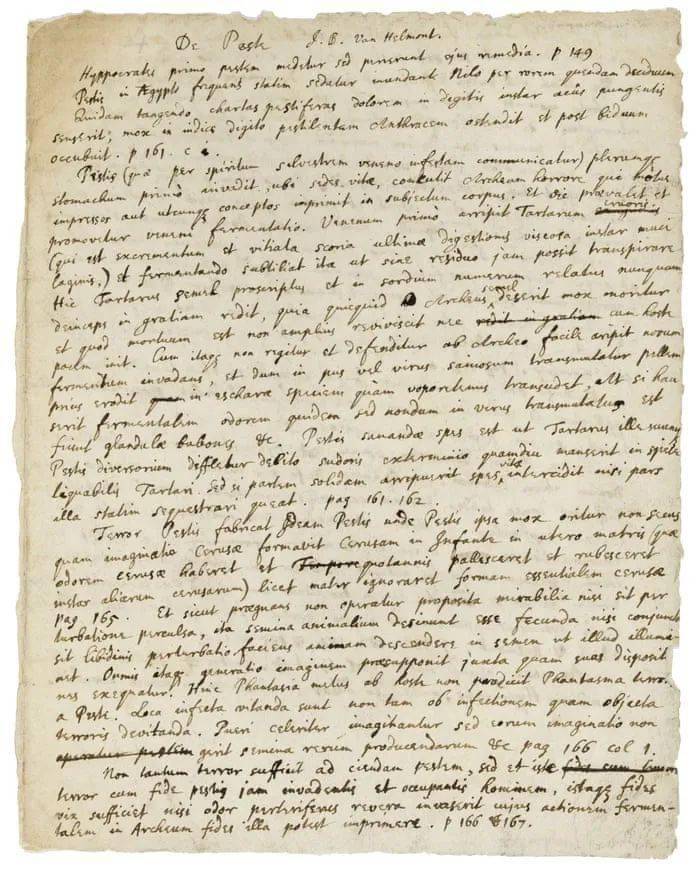 De Peste J. B. Van Helmont.
Hyppocrates primo pestem medetur sed perierunt ejus remedia. p 149
Pestis in Ægypto frequens statim sedatur inundante Nilo per rorem quendam deciduum
Quidam tangendo chartas pestiferas dolorem in digitis instar acûs pungentis
senserit, mox in indice digito pestilentem Anthracem ostendit et post biduum
occubuit. p 161. c
Pestis (quæ per spiritum silvestrem veneno infectam communicatur) plerumqꝫ
stomachum primò invadit ubi sedes vitæ, concutit Archeum horrore, qui motus
impressos aut utcunqꝫ conceptos imprimit in subjectum corpus. Et sic prævalet et
promovetur veneni fermentatio. Venenum primo arripit Tartarum cruoris
(qui est excrementum et vitiata scoria ultimæ digestionis viscosa instar muci
laginis,) et fermentando subtiliat ita ut sine residuo jam possit transpirare
Hic Tartarus semel proscriptus et in sordium numerum relatus nunquam
deinceps in gratiam redit, quia quicquid Archeus semel deserit mox moritur
et quod mortuum est non amplius reviviscit nec redit in gratiam cum hoste
pacem init. Cum itaqꝫ non regitur et defenditur ab Archeo facile aripit novum
fermentum invadens, et dum in pus vel virus saniosum transmutatur pellem
prius erodit in escharæ speciem quàm vaporetenus transudet, At si hau
serit fermentalem odorem quidem sed nondum in virus transmutatus est
fiunt glandulæ bubones &c. Pestis sanandæ spes est ut Tartarus ille
Pestis diversorium diffletur debito sudoris exterminio quamdiu manserit in specie
liquabilis Tartari. Sed si partem solidam arripuerit spes vitæ intercidit nisi pars
illa statim sequestrari queat. pag 161. 162.
Terror Pestis fabricat Ideam Pestis unde Pestis ipsa mox oritur non secus
quam imaginatio Cerusæ formavit Cerusam in Infante in utero matris (quæ
odorem cerusæ haberet et quotannis pallesceret et rubesceret
instar aliarum cerusarum) licet mater ignoraret formam essentialem cerusæ
pag 165. Et sicut prægnans non operatur proposita mirabilia nisi sit per
turbatione perculsa, ita semina animalium desinunt esse fecunda nisi conjuncta
sit libidinis perturbatio faciens animam descendere in semen ut illud illumi-
net. Omnis itaqꝫ generatio imaginem præsupponit juxta quam suas disposit
nes exequatur. Hinc Phantasia metus ab hoste non producit Phantasma terro.
a Peste. Loca infecta vitanda sunt non tam ob infectionem quam objecta
terroris devitanda. Pueri celeriter imaginantur sed eorum imaginatio non
operatur pestem gerit semina rerum producendarum &c pag 166 col 1.
Non tantum terror sufficit ad ciendam pestem, sed et iste fides cum
terror cum fide pestis jam invadentis et occupantis hominem, istaqꝫ fides
vix sufficiet nisi odor revera invaserit cujus actionem fermen-
talem in Archeum fides illa potest imprimere. p 166 & 167.